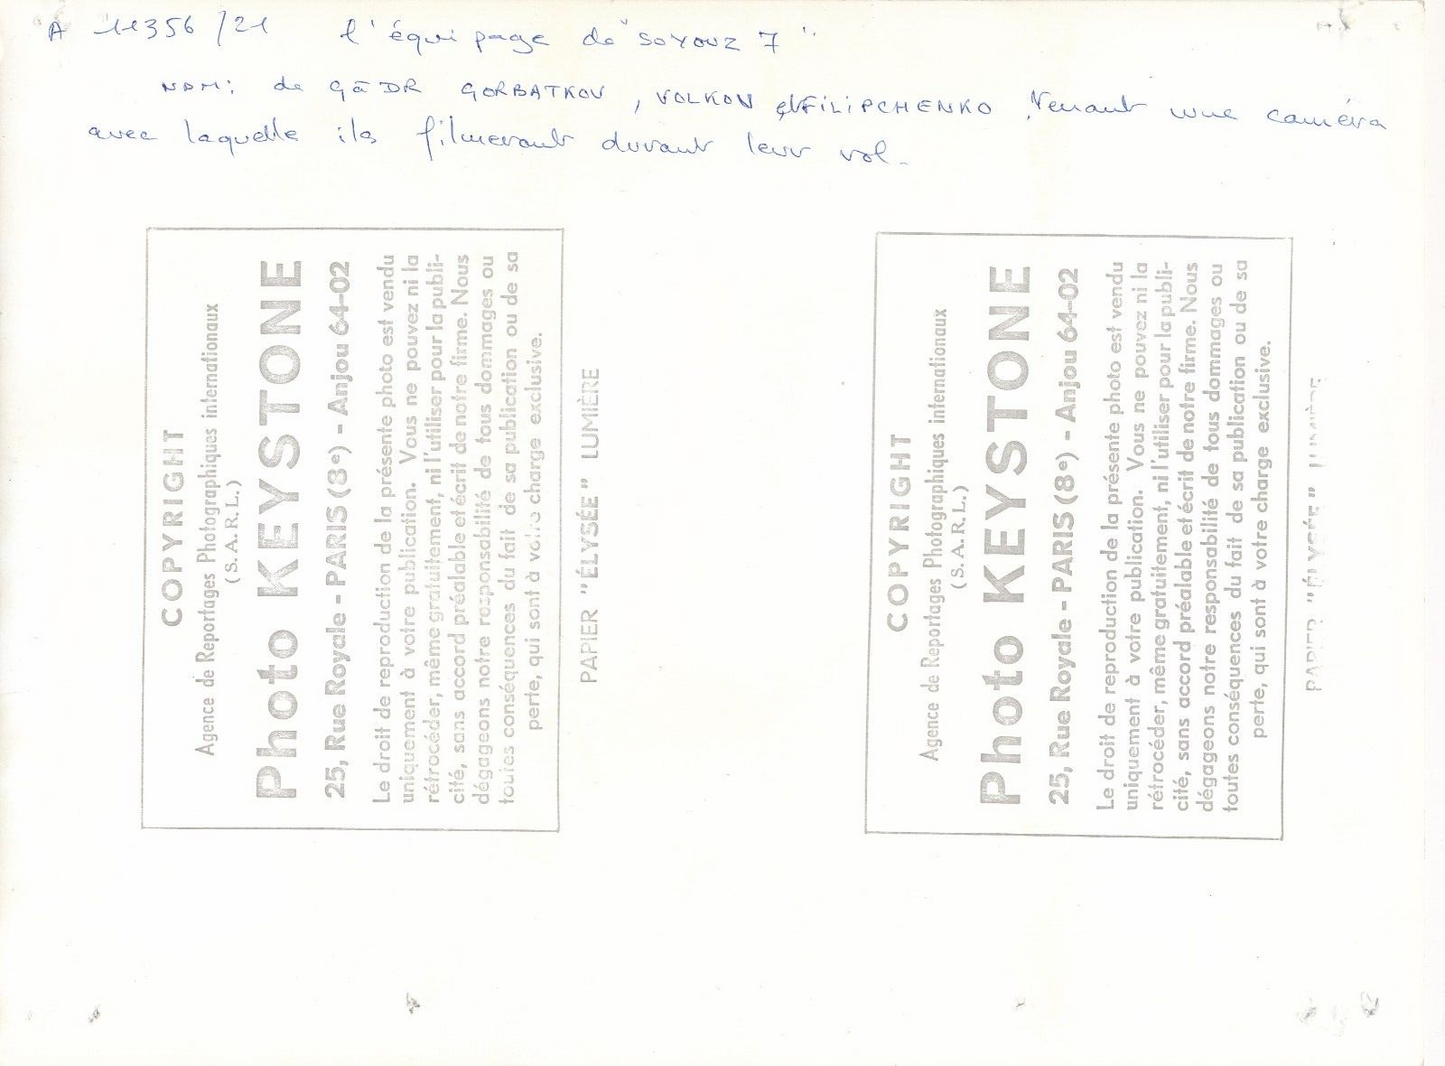 A 11356/21 l'équipage de "SOYOUZ 7"
NDM: de Gā DR GORBATKOV, VOLKOV et FILIPCHENKO, tenant une caméra
avec laquelle ils filmeront durant leur vol.
COPYRIGHT
Agence de Reportages Photographiques internationaux
(S.A.R.L.)
Photo KEYSTONE
25, Rue Royale - PARIS (8e) - Anjou 64-02
Le droit de reproduction de la présente photo est vendu
uniquement à votre publication. Vous ne pouvez ni la
rétrocéder, même gratuitement, ni l'utiliser pour la publi-
cité, sans accord préalable et écrit de notre firme. Nous
dégageons notre responsabilité de tous dommages ou
toutes conséquences du fait de sa publication ou de sa
perte, qui sont à votre charge exclusive.
PAPIER "ÉLYSÉE" LUMIÈRE
COPYRIGHT
Agence de Reportages Photographiques internationaux
(S.A.R.L.)
Photo KEYSTONE
25, Rue Royale - PARIS (8e) - Anjou 64-02
Le droit de reproduction de la présente photo est vendu
uniquement à votre publication. Vous ne pouvez ni la
rétrocéder, même gratuitement, ni l'utiliser pour la publi-
cité, sans accord préalable et écrit de notre firme. Nous
dégageons notre responsabilité de tous dommages ou
toutes conséquences du fait de sa publication ou de sa
perte, qui sont à votre charge exclusive.
PAPIER "ÉLYSÉE" LUMIÈRE